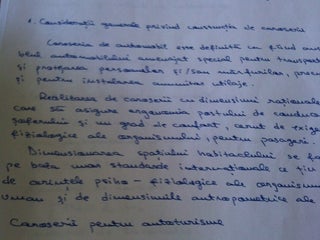 1. Consideratii generale privind constructia de caroserii
Caroseria de automobil este definită ca fiind ans
blul automobilului amenajat special pentru transportu
și protejarea persoanelor și/sau mărfurilor, precum
și pentru instalarea anumitor utilaje.
Realizarea de caroserii cu dimensiuni rationale
care să asigure ergonomia postului de conducer
șoferului și un grad de confort, cerut de exige
fiziologice ale organismului, pentru pasageri.
Dimensionarea spațiului habitaclului se fa
pe baza unor standarde internationale ce țin
de cerintele psiho-fiziologice ale organismu
uman și de dimensiunile antropometrice ale
Caroserii pentru autoturisme